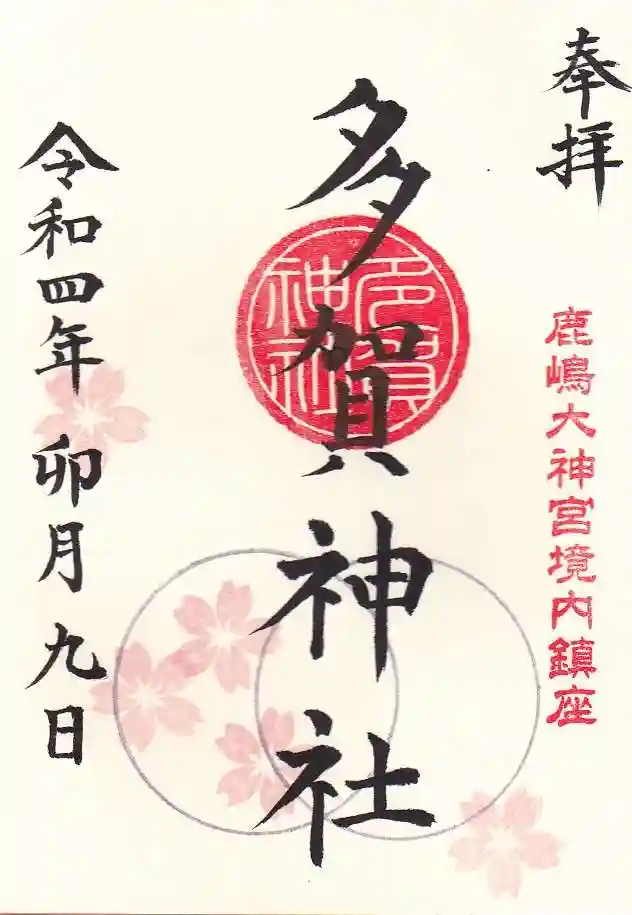 奉拝
鹿嶋大神宮境内鎮座
多賀神社
多賀
神社
令和四年 卯月 九日